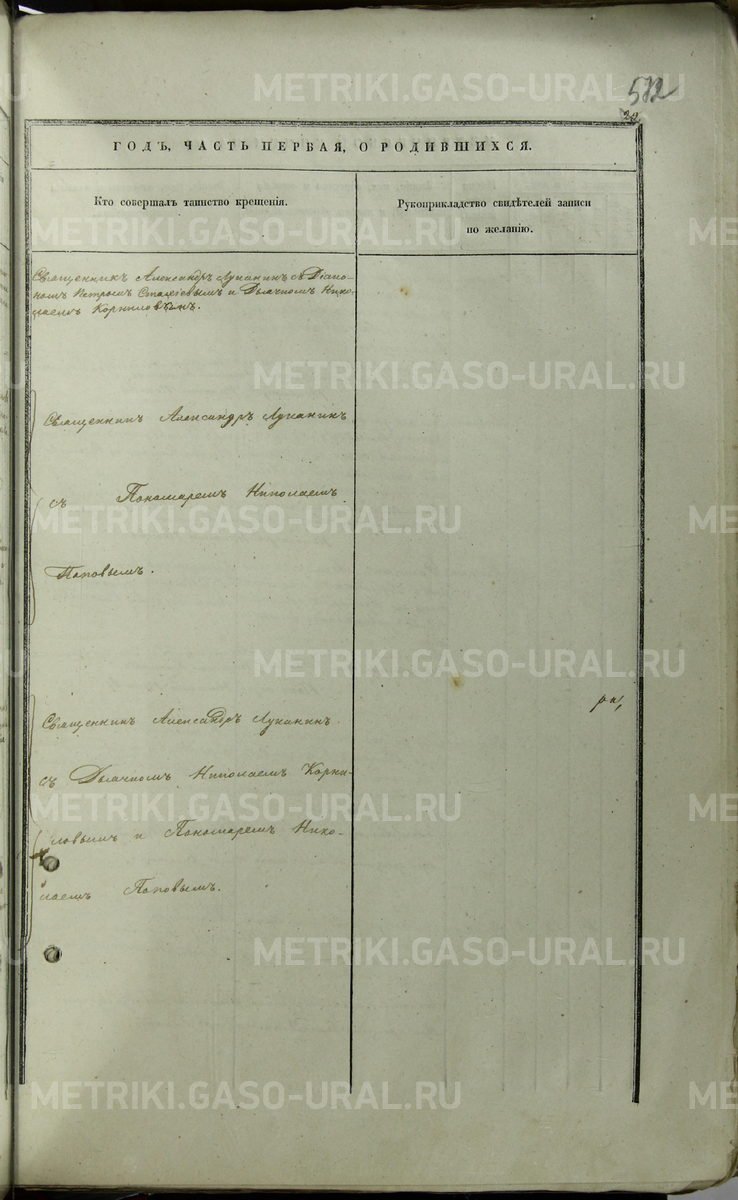 572
20
ГОДЪ, ЧАСТЬ ПЕРВАЯ, О РОДИВШИХСЯ.
Кто совершалъ таинство крещенія.
Рукоприкладство свидѣтелей записи
по желанію.
Священникъ Александръ Луканинъ съ Діако-
номъ Петромъ и Дьячкомъ Нико-
лаемъ Корниловымъ.
Священникъ Александръ Луканинъ
съ Пономаремъ Николаемъ
Поповымъ.
Священникъ Александръ Луканинъ
съ Дьячкомъ Николаемъ Корни-
ловымъ и Пономаремъ Нико-
лаемъ Поповымъ.
METRIKI.GASO-URAL.RU